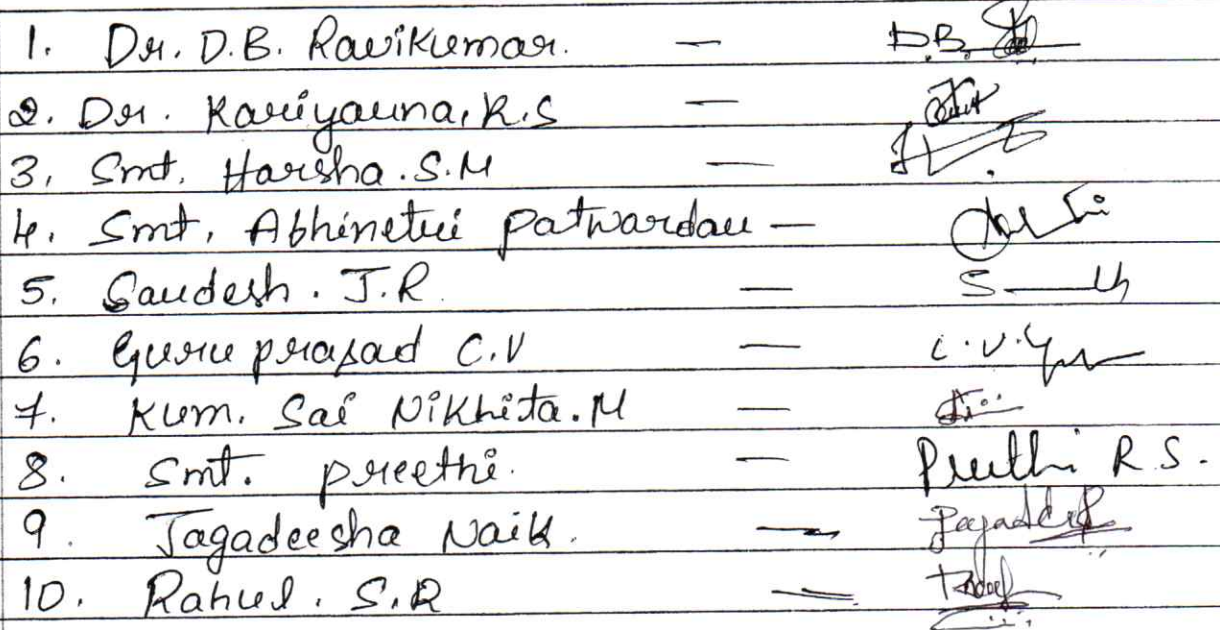 1. Dr. D.B. Ravikumar. — D.B.
2. Dr. Kariyanna, R.S —
3, Smt. Harsha. S.M —
4. Smt, Abhinetri Patwardan —
5. Sandesh. J.R. —
6. Guru prasad C.V — C.V.
7. Kum. Sai Nikhita. M —
8. Smt. Preethi. — Preethi R.S.
9. Jagadeesha Naik. —
10. Rahul. S.R —